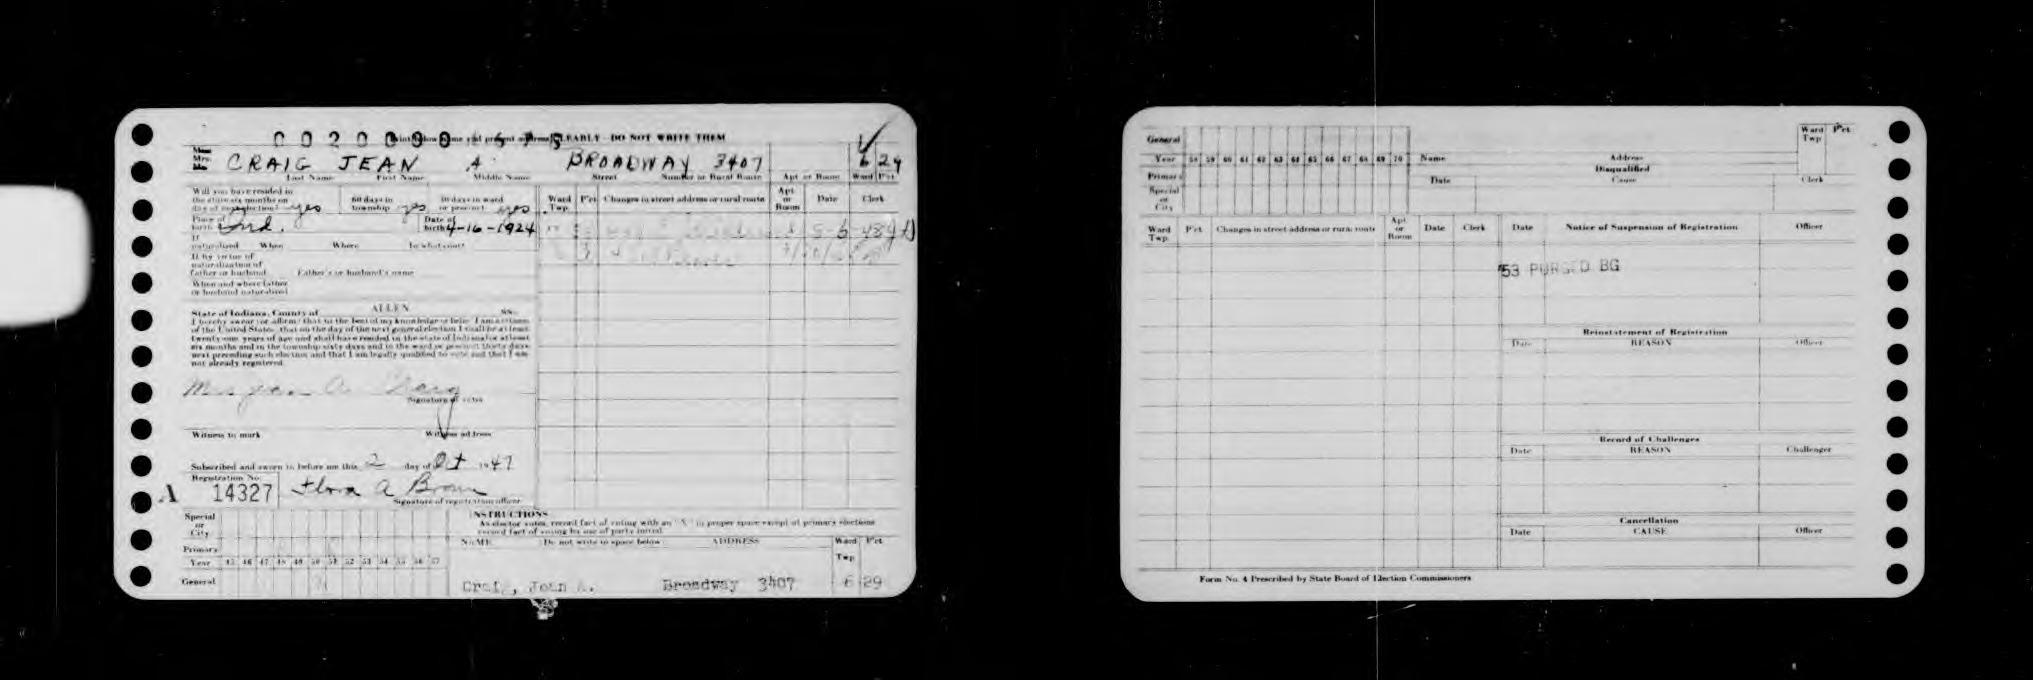 CLEARLY - DO NOT WRITE THEM
Mrs. CRAIG JEAN A. BROADWAY 3407 6 29
Last Name First Name Middle Name Street Number or Rural Route Apt or Room Ward P'ct
Will you have resided in
the state six months on
day of next election? yes
60 days in
township yes
30 days in ward
or precinct yes
Place of
birth Ind.
Date of
birth 4-16-1924
If
naturalized When Where In what court
If by virtue of
naturalization of
father or husband Father's or husband's name
When and where father
or husband naturalized
State of Indiana, County of ALLEN ss.
I hereby swear (or affirm) that to the best of my knowledge or belief I am a citizen
of the United States, that on the day of the next general election I shall be at least
twenty-one years of age and shall have resided in the state of Indiana for at least
six months and in the township sixty days and in the ward or precinct thirty days
next preceding such election and that I am legally qualified to vote and that I am
not already registered.
Mrs Jean A. Craig
Signature of voter
Witness to mark Witness address
Subscribed and sworn to before me this 2 day of Oct 1947
Registration No.
A 14327 Flora A Brown
Signature of registration officer
Ward
Twp. P'ct Changes in street address or rural route Apt
or
Room Date Clerk
Special
or
City
Primary
Year 45 46 47 48 49 50 51 52 53 54 55 56 57
General
INSTRUCTIONS
As elector votes, record fact of voting with an "X" in proper space except at primary elections
record fact of voting by use of party initial.
NAME Do not write in space below ADDRESS Ward
Twp P'ct
Craig, Jean A. Broadway 3407 6 29
General
Year 58 59 60 61 62 63 64 65 66 67 68 69 70
Primary
Special
or
City
Name Address Ward
Twp P'ct
Disqualified
Date Cause Clerk
Ward
Twp. P'ct Changes in street address or rural route Apt
or
Room Date Clerk
Date Notice of Suspension of Registration Officer
'53 PURGED BG
Reinstatement of Registration
Date REASON Officer
Record of Challenges
Date REASON Challenger
Cancellation
Date CAUSE Officer
Form No. 4 Prescribed by State Board of Election Commissioners